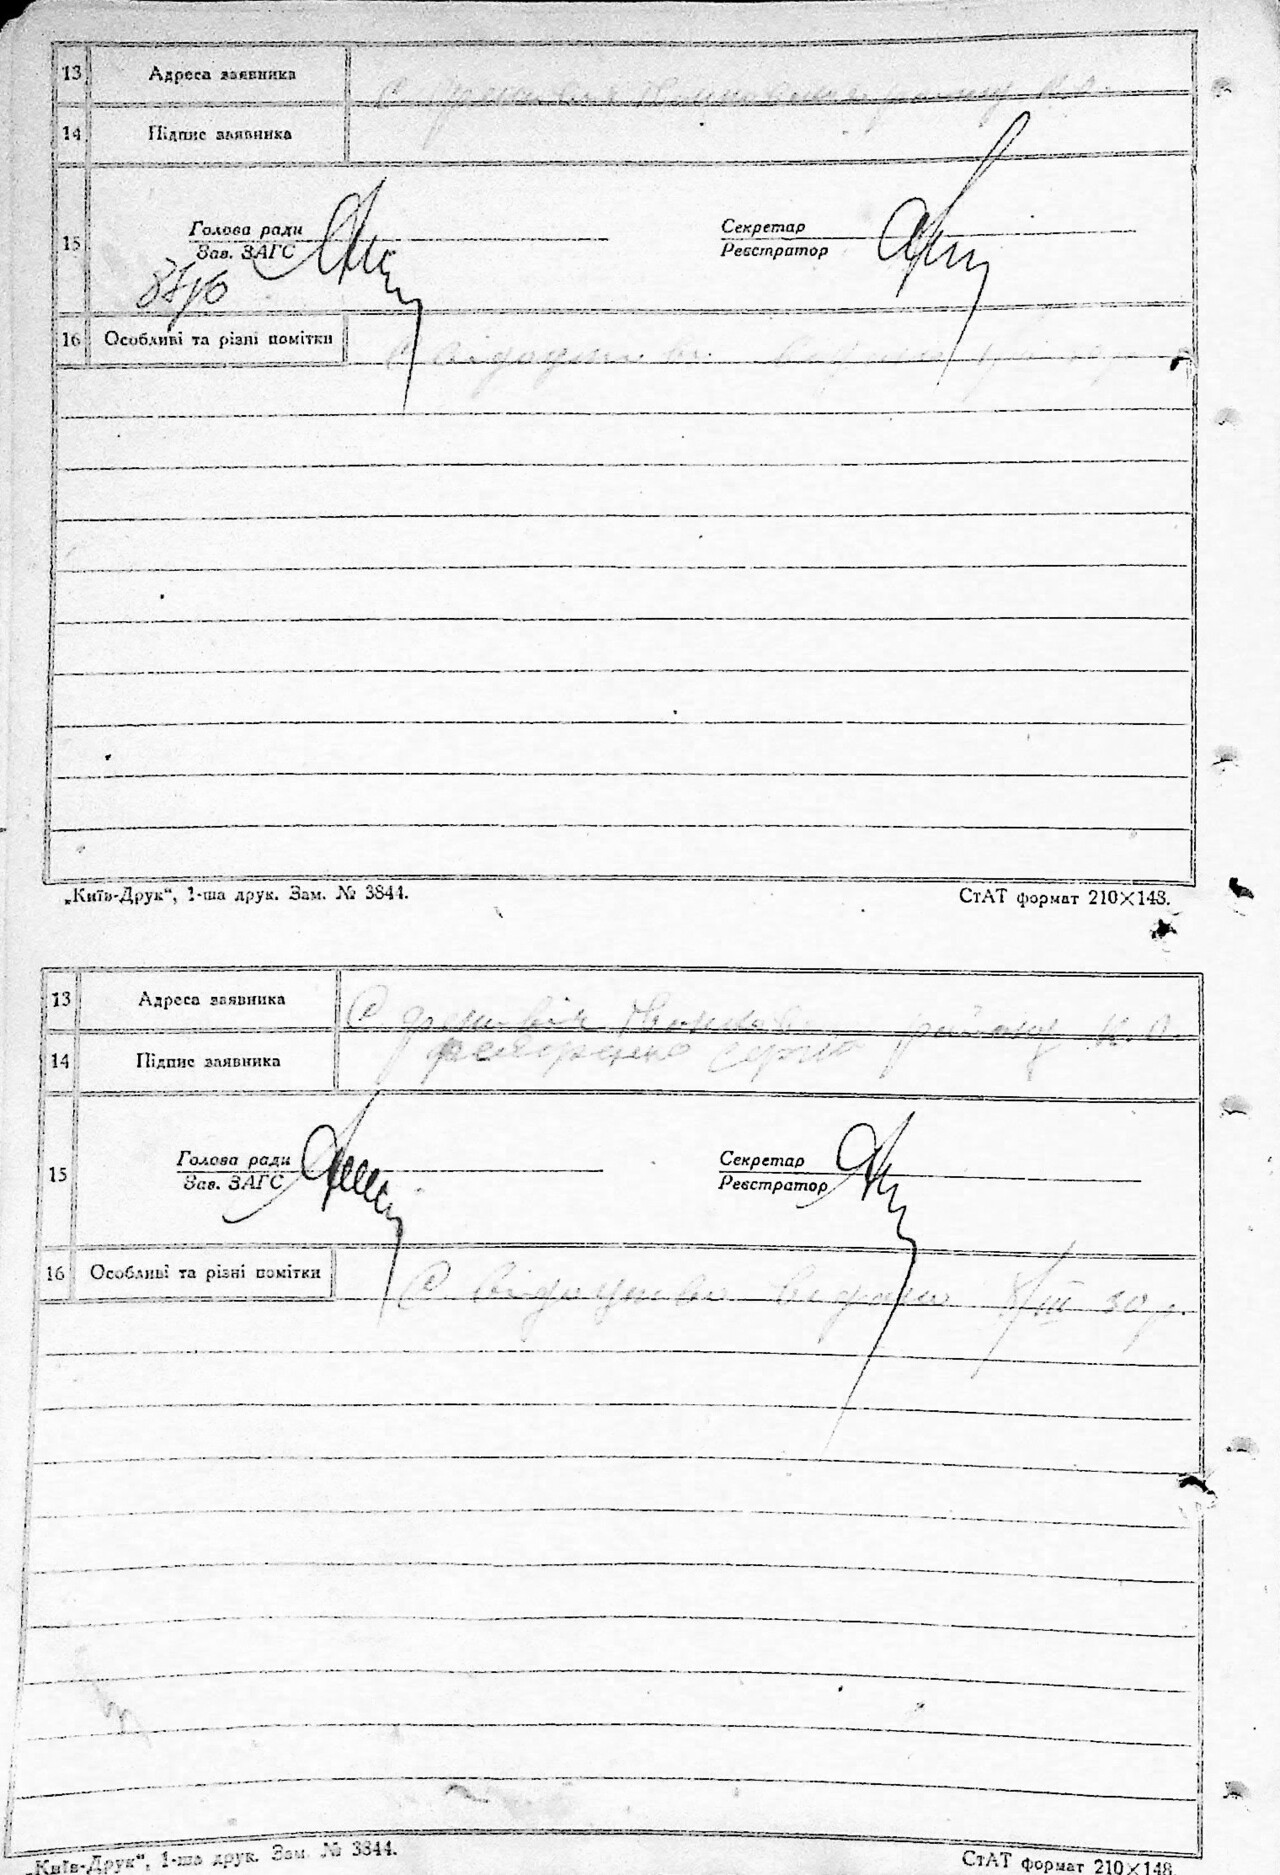 13 Адреса заявника С
14 Підпис заявника
15 Голова ради Секретар
Зав. ЗАГС Реєстратор
16 Особливі та різні помітки
„Київ-Друк“, 1-ша друк. Зам. № 3844. СтАТ формат 210×148.
13 Адреса заявника С району К.О.
14 Підпис заявника
15 Голова ради Секретар
Зав. ЗАГС Реєстратор
16 Особливі та різні помітки Свідоцтво видано 8/III 30 р.
„Київ-Друк“, 1-ша друк. Зам. № 3844. СтАТ формат 210×148